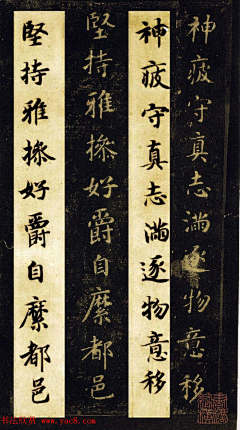 神疲守真志滿逐物意移
神疲守真志滿逐物意移
堅持雅操好爵自縻都邑
堅持雅操好爵自縻都邑
书法欣赏 www.yac8.com